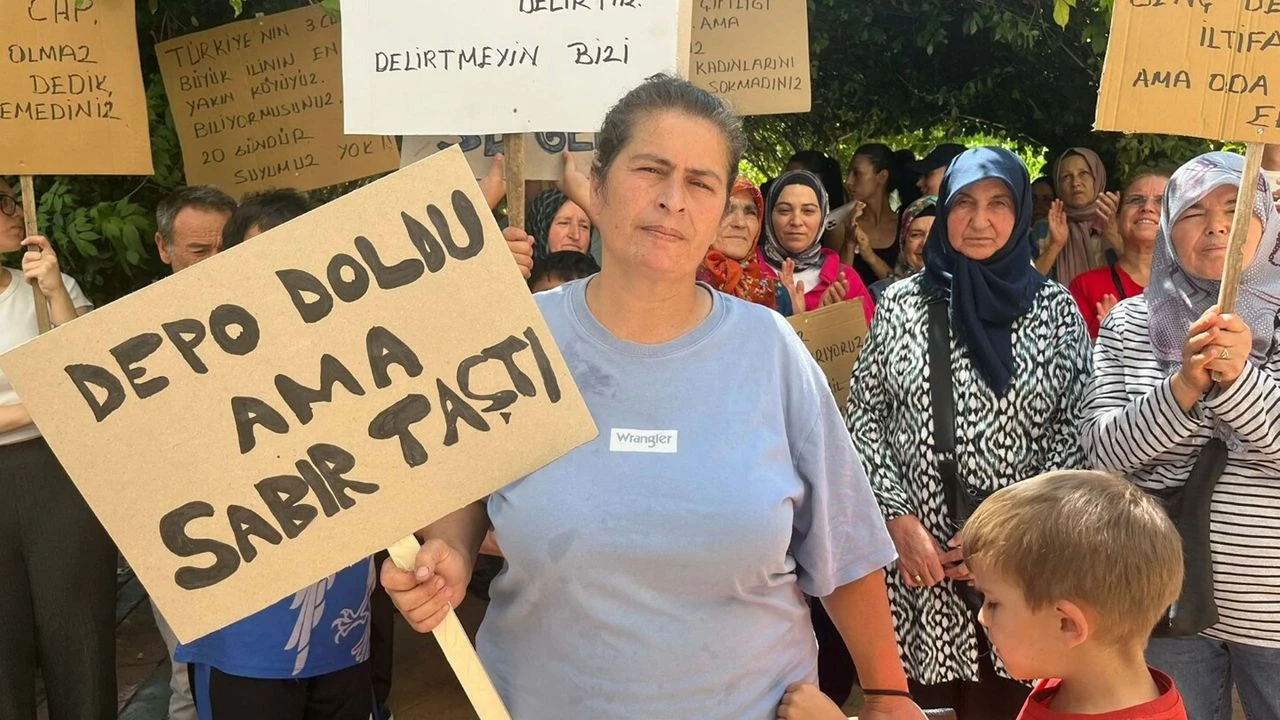 CHP.
OLMAZ
DEDİK,
EMEDİNİZ
TÜRKİYE'NİN 3 CÜ
BÜYÜK İLİNİN EN
YAKIN KÖYÜYÜZ.
BİLİYORMUSUNUZ.
20 GÜNDÜR
SUYUMUZ YOK!
DELİRTİR.
DELİRTMEYİN BİZİ
ÇİFTLİĞİ
AMA
KADINLARINI
SOKMADINIZ
İLTİFA
AMA ODA
DEPO DOLDU
AMA
SABIR TAŞTI
Wrangler